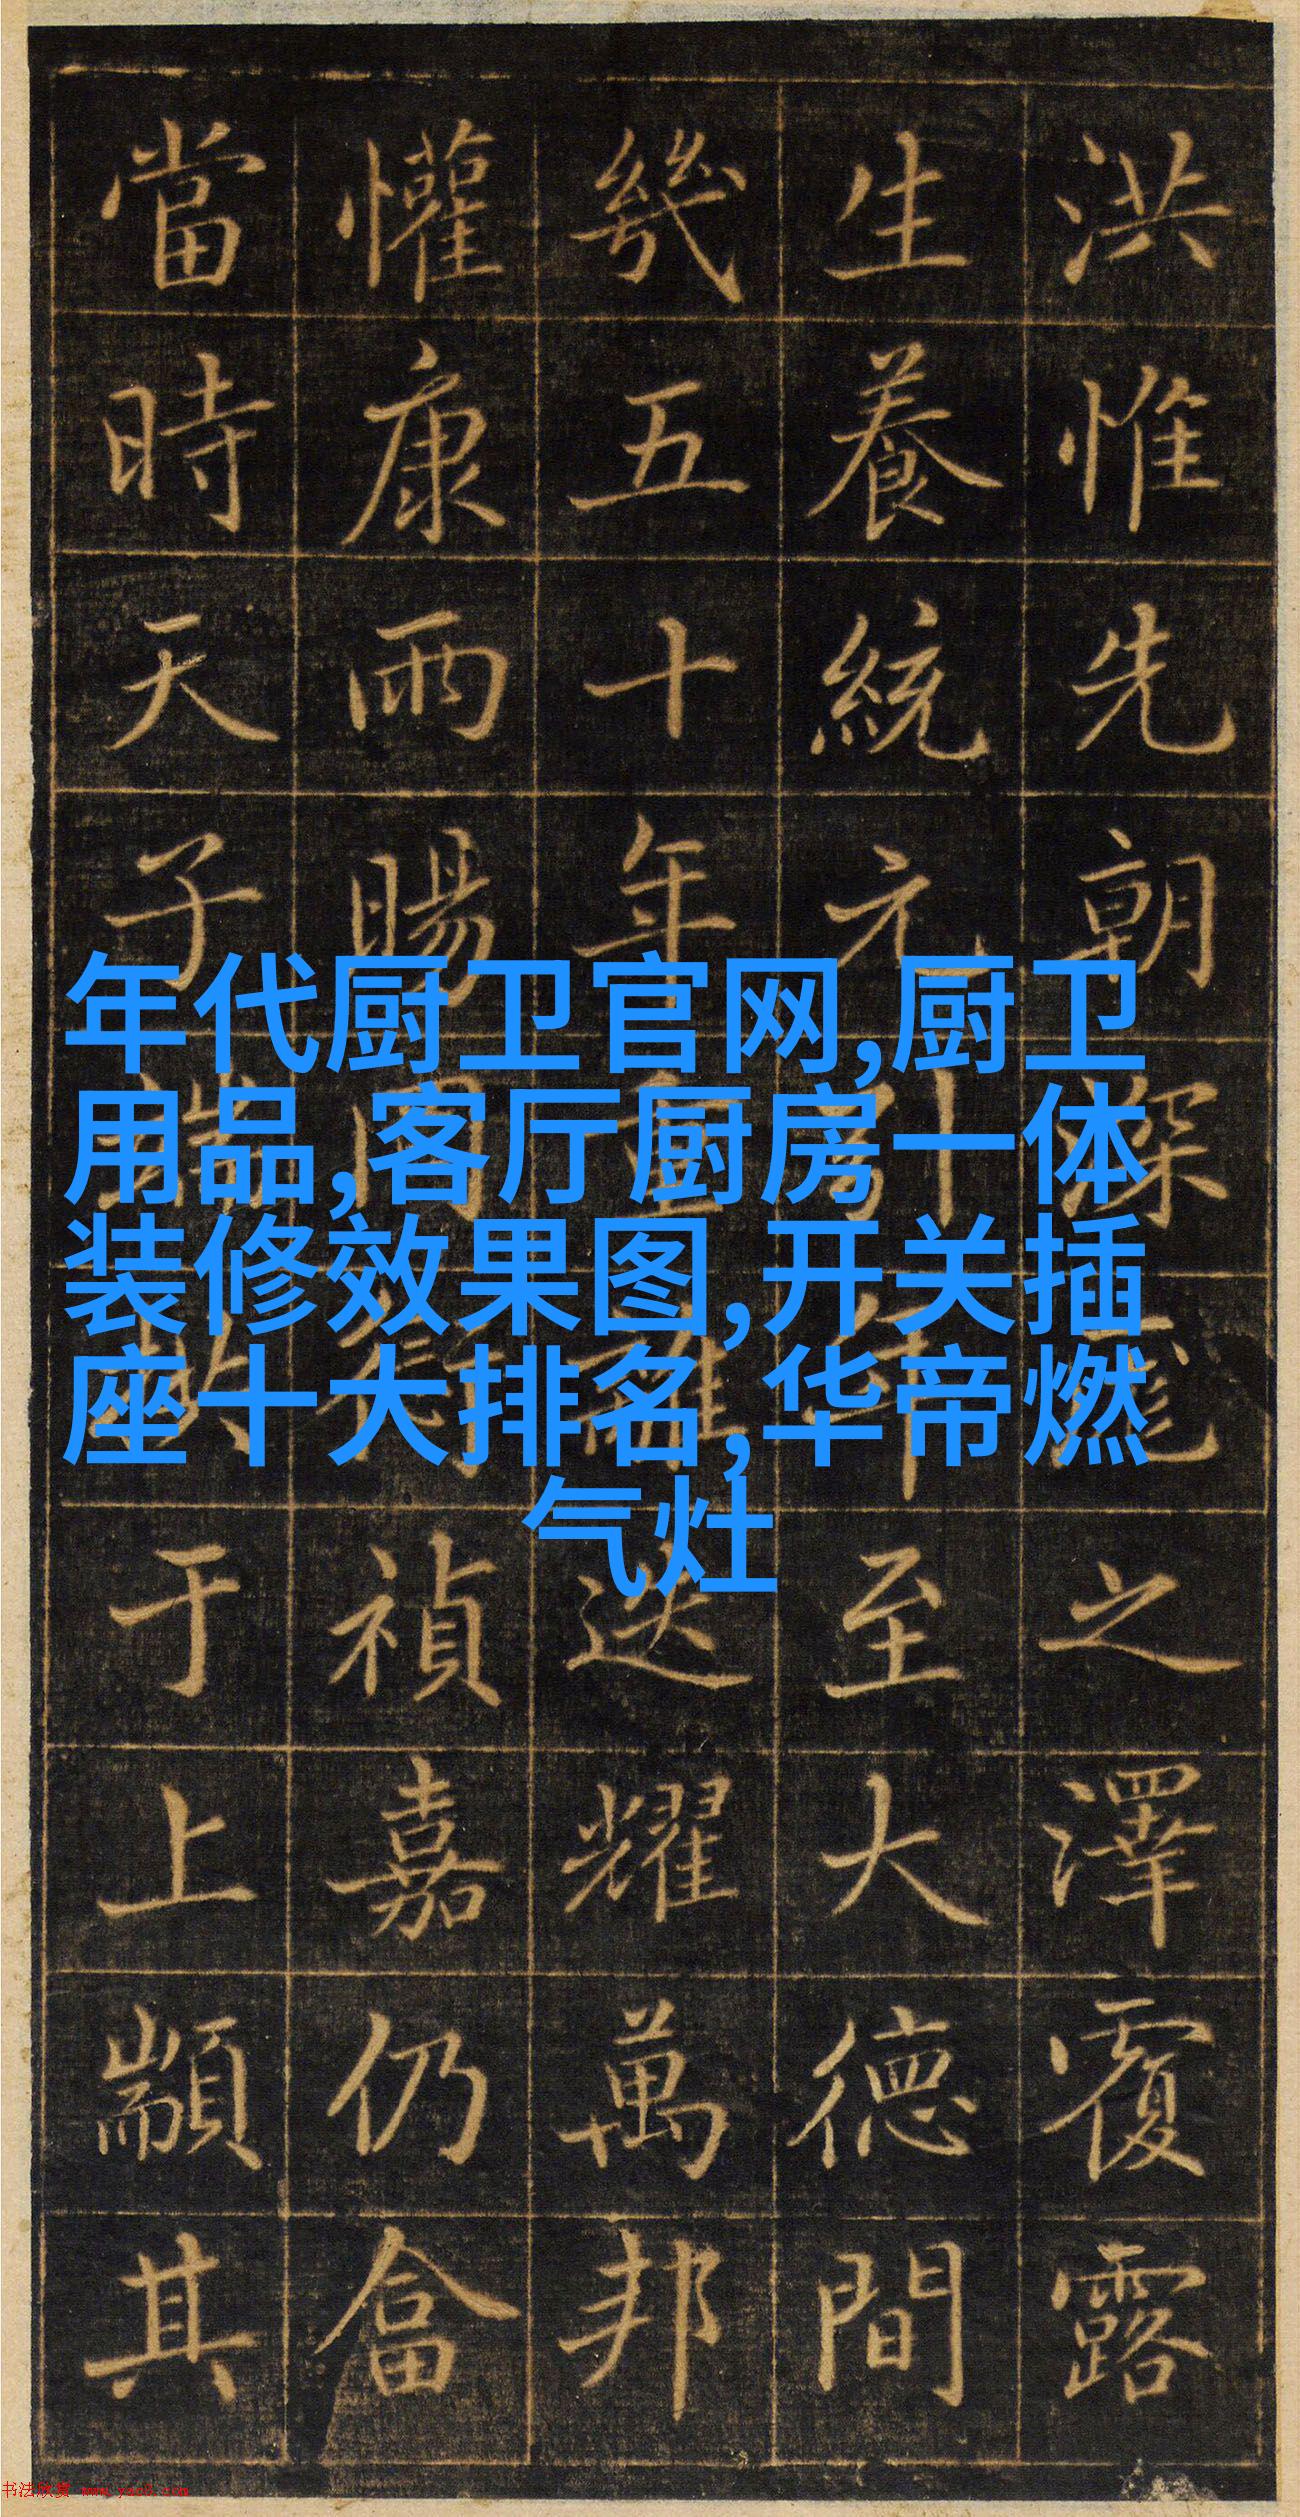 洪惟先朝深之澤覆露
生養統元引年至大德間
幾五十年重離迭耀萬邦
懽康雨暘禎嘉仍畣
當時天子端拱于上顒其
年代厨卫官网,厨卫
用品,客厅厨房一体
装修效果图,开关插
座十大排名,华帝燃
气灶
书法欣赏 www.yac8.com